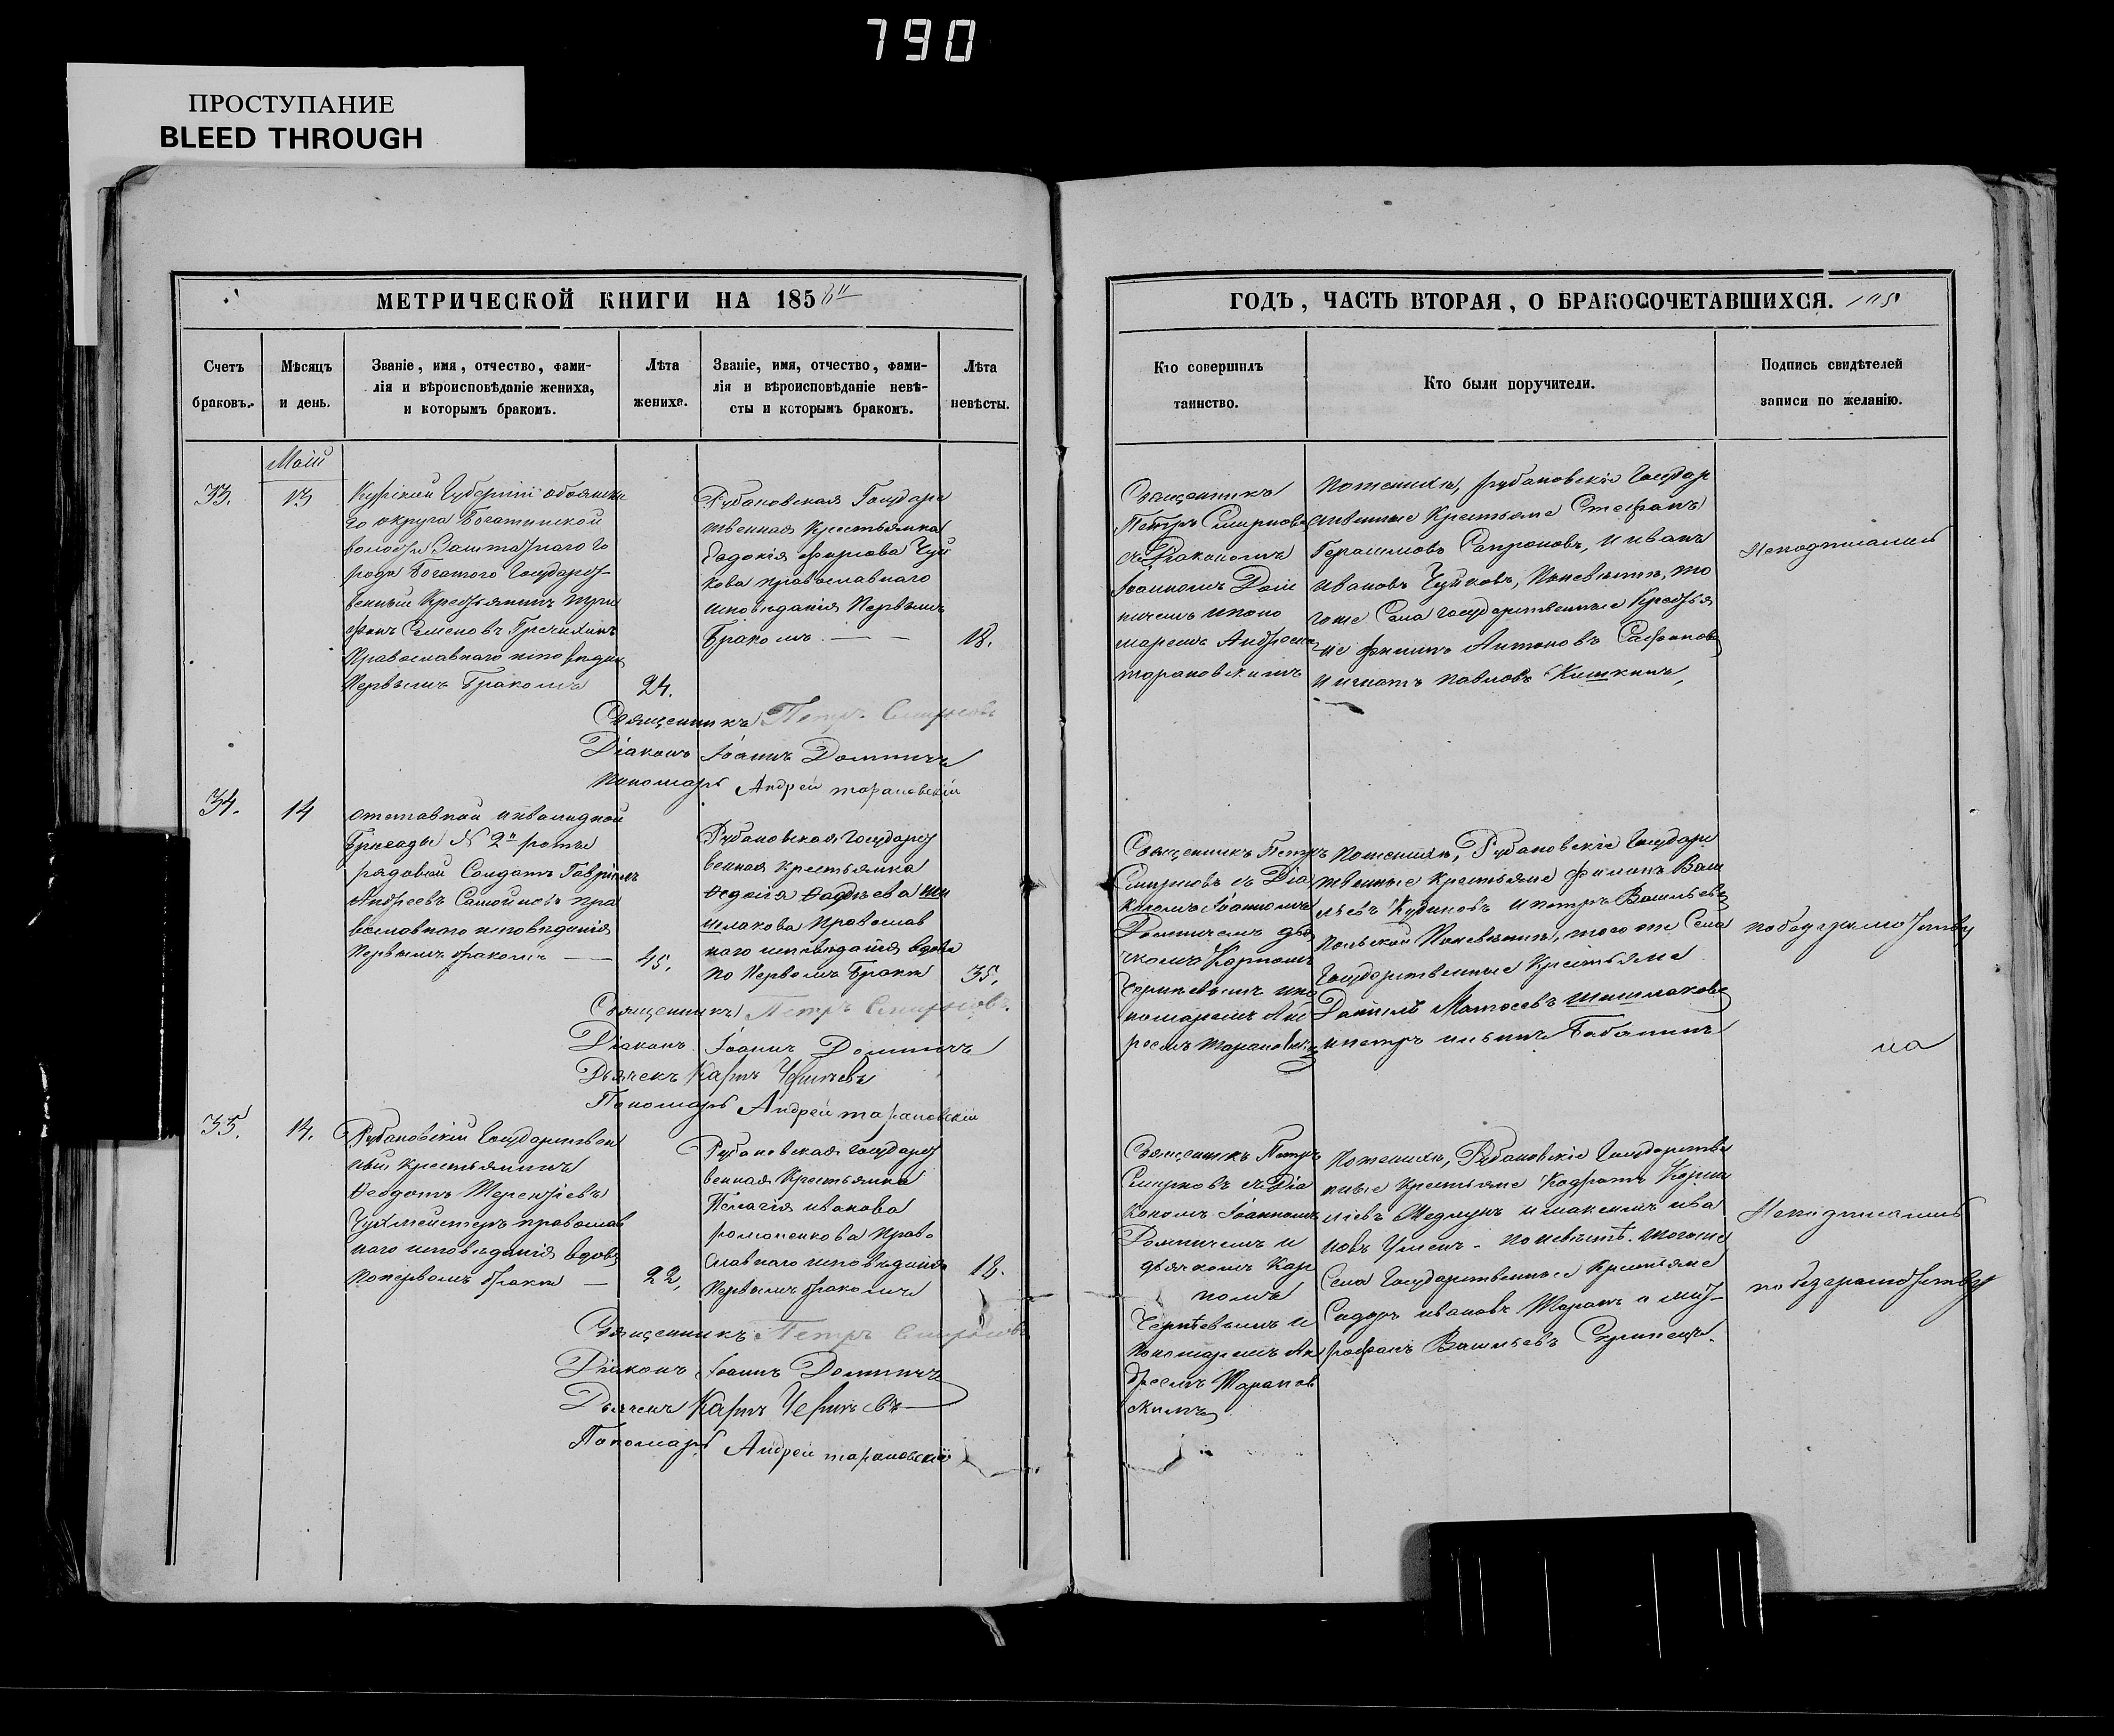 790
ПРОСТУПАНИЕ
BLEED THROUGH
МЕТРИЧЕСКОЙ КНИГИ НА 185
Счетъ браковъ.
Мѣсяцъ и день.
Званіе, имя, отчество, фами-
лія и вѣроисповѣданіе жениха,
и которымъ бракомъ.
Лѣта
жениха.
Званіе, имя, отчество, фами-
лія и вѣроисповѣданіе невѣ-
сты и которымъ бракомъ.
Лѣта
невѣсты.
Маій
33.
13
Курской Губерніи обоянска
го округа Богатинской
волости Заштатнаго го
рода Богатого Государст-
венный Крестьянинъ
Семеновъ Гречихинъ
Православнаго исповедан
Первымъ Бракомъ
24.
Рубановская Государс
твенная Крестьянка
Евдокія Чуй
кова православнаго
исповѣданія Первымъ
Бракомъ
18.
Священникъ Петръ Смирновъ
Діаконъ Іоаннъ Доминичъ
Пономарь Андрей Тарановскій
34.
14
отставной инвалидной
Бригады № 2й роты
рядовой Солдатъ Гавріилъ
Андреевъ Самойловъ пра
вославнаго исповѣданія
Первымъ бракомъ
45.
Рубановская Государст
венная Крестьянка
Ши
шлакова Православ
наго исповѣданія вдова
по Первомъ Бракѣ
35.
Священникъ Петръ Смирновъ
Діаконъ Іоаннъ Доминичъ
Дьячекъ Карпъ
Пономарь Андрей Тарановскій
35.
14.
Рубановскій Государствен
ный крестьянинъ
Ѳеодотъ Терентіевъ
православ
наго исповѣданія вдовъ
по первомъ бракѣ
22.
Рубановская Государст
венная Крестьянка
Пелагія иванова
романенкова Право
славнаго исповѣданія
Первымъ бракомъ
18.
Священникъ Петръ Смирновъ
Діаконъ Іоаннъ Доминичъ
Дьячекъ Карпъ
Пономарь Андрей Тарановскій
ГОДЪ, ЧАСТЬ ВТОРАЯ, О БРАКОСОЧЕТАВШИХСЯ.
Кто совершилъ
таинство.
Кто были поручители.
Подпись свидѣтелей
записи по желанію.
Священникъ
Петръ Смирновъ
съ Діакономъ
Іоанномъ Доми
ничемъ и поно
маремъ Андреемъ
Тарановскимъ
По женихѣ, рубановскіе Государ
ственные Крестьяне Стефанъ
Герасимовъ Сапроновъ, и иванъ
ивановъ Чуйковъ, По невѣстѣ, то
гоже Села государственные Крестья
не Антоновъ
и игнатъ павловъ Кишкинъ,
Неподписались
Священникъ Петръ
Смирновъ съ Діа
кономъ Іоанномъ
Доминичемъ дья
чкомъ Карпомъ
и по
номаремъ Анд
реемъ Тарановским
По женихѣ, Рубановскіе Государс
твенные крестьяне Васи
льевъ Кудиновъ и петръ Васильевъ
По невѣстѣ, того же Села
Государственные Крестьяне
Даніилъ Шишлаковъ
и петръ ильинъ
по безграмотству
Священникъ Петръ
Смирновъ съ Діа
кономъ Іоанномъ
Доминичемъ и
дьячкомъ Кар
помъ
и
Пономаремъ Ан
дреемъ Таранов
скимъ
По женихѣ, Рубановскіе Государстве
нные Крестьяне Кодратъ Корни
ліевъ и максимъ ива
новъ По невѣстѣ. тогоже
Села Государственные Крестьяне
Сидоръ ивановъ Таранъ и мит-
рофанъ Васильевъ
Неподписались
по безграмотству